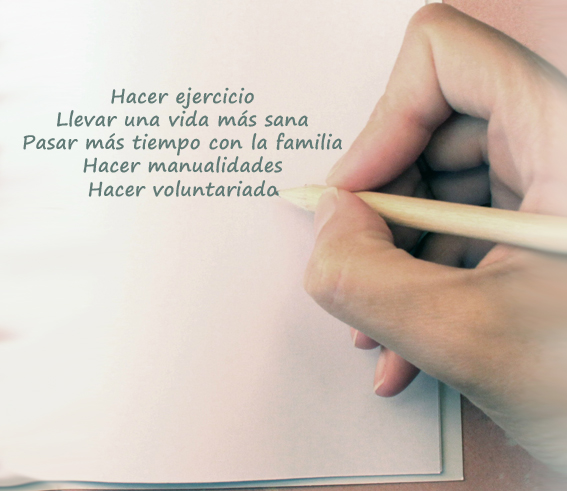 Hacer ejercicio
Llevar una vida más sana
Pasar más tiempo con la familia
Hacer manualidades
Hacer voluntariado